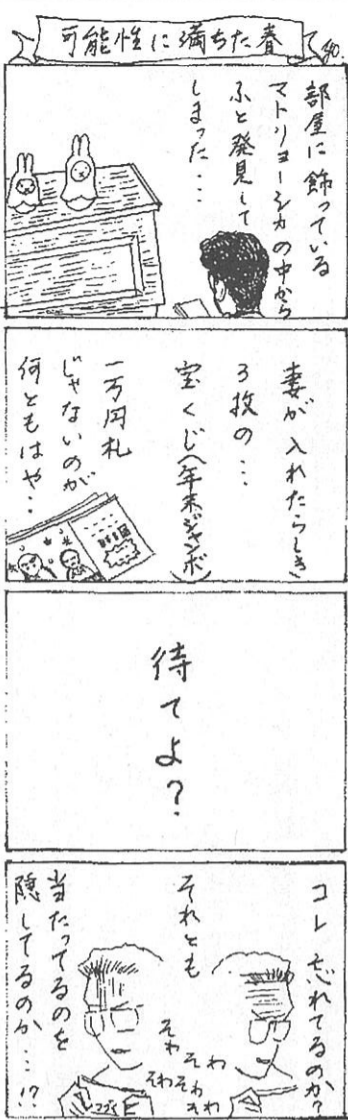 可能性に満ちた春
40.
部屋に飾っている
マトリョーシカの中から
ふと発見して
しまった...
妻が入れたらしき
3枚の...
宝くじ(年末ジャンボ)
一万円札
じゃないのが
何ともはや..
待てよ?
コレ忘れてるのか?
それとも
そわ
そわ
そわそわ
そわ
当たってるのを
隠してるのか...!?
つづく